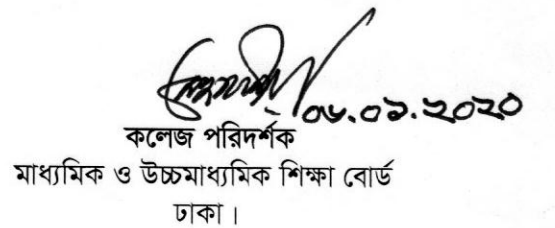 ০৮.০১.২০২০
কলেজ পরিদর্শক
মাধ্যমিক ও উচ্চমাধ্যমিক শিক্ষা বোর্ড
ঢাকা।